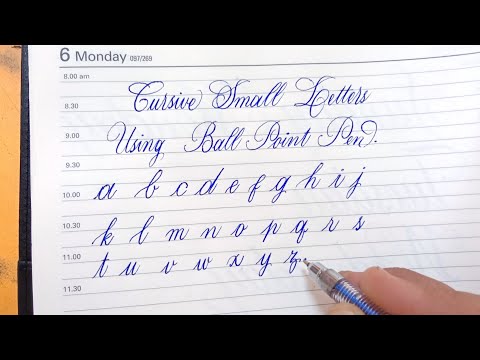 6 Monday 097/269
8.00 am
Cursive Small Letters
8.30
Using Ball Point Pen.
9.00
9.30
a b c d e f g h i j
10.00
10.30
k l m n o p q r s
11.00
t u v w x y z
11.30